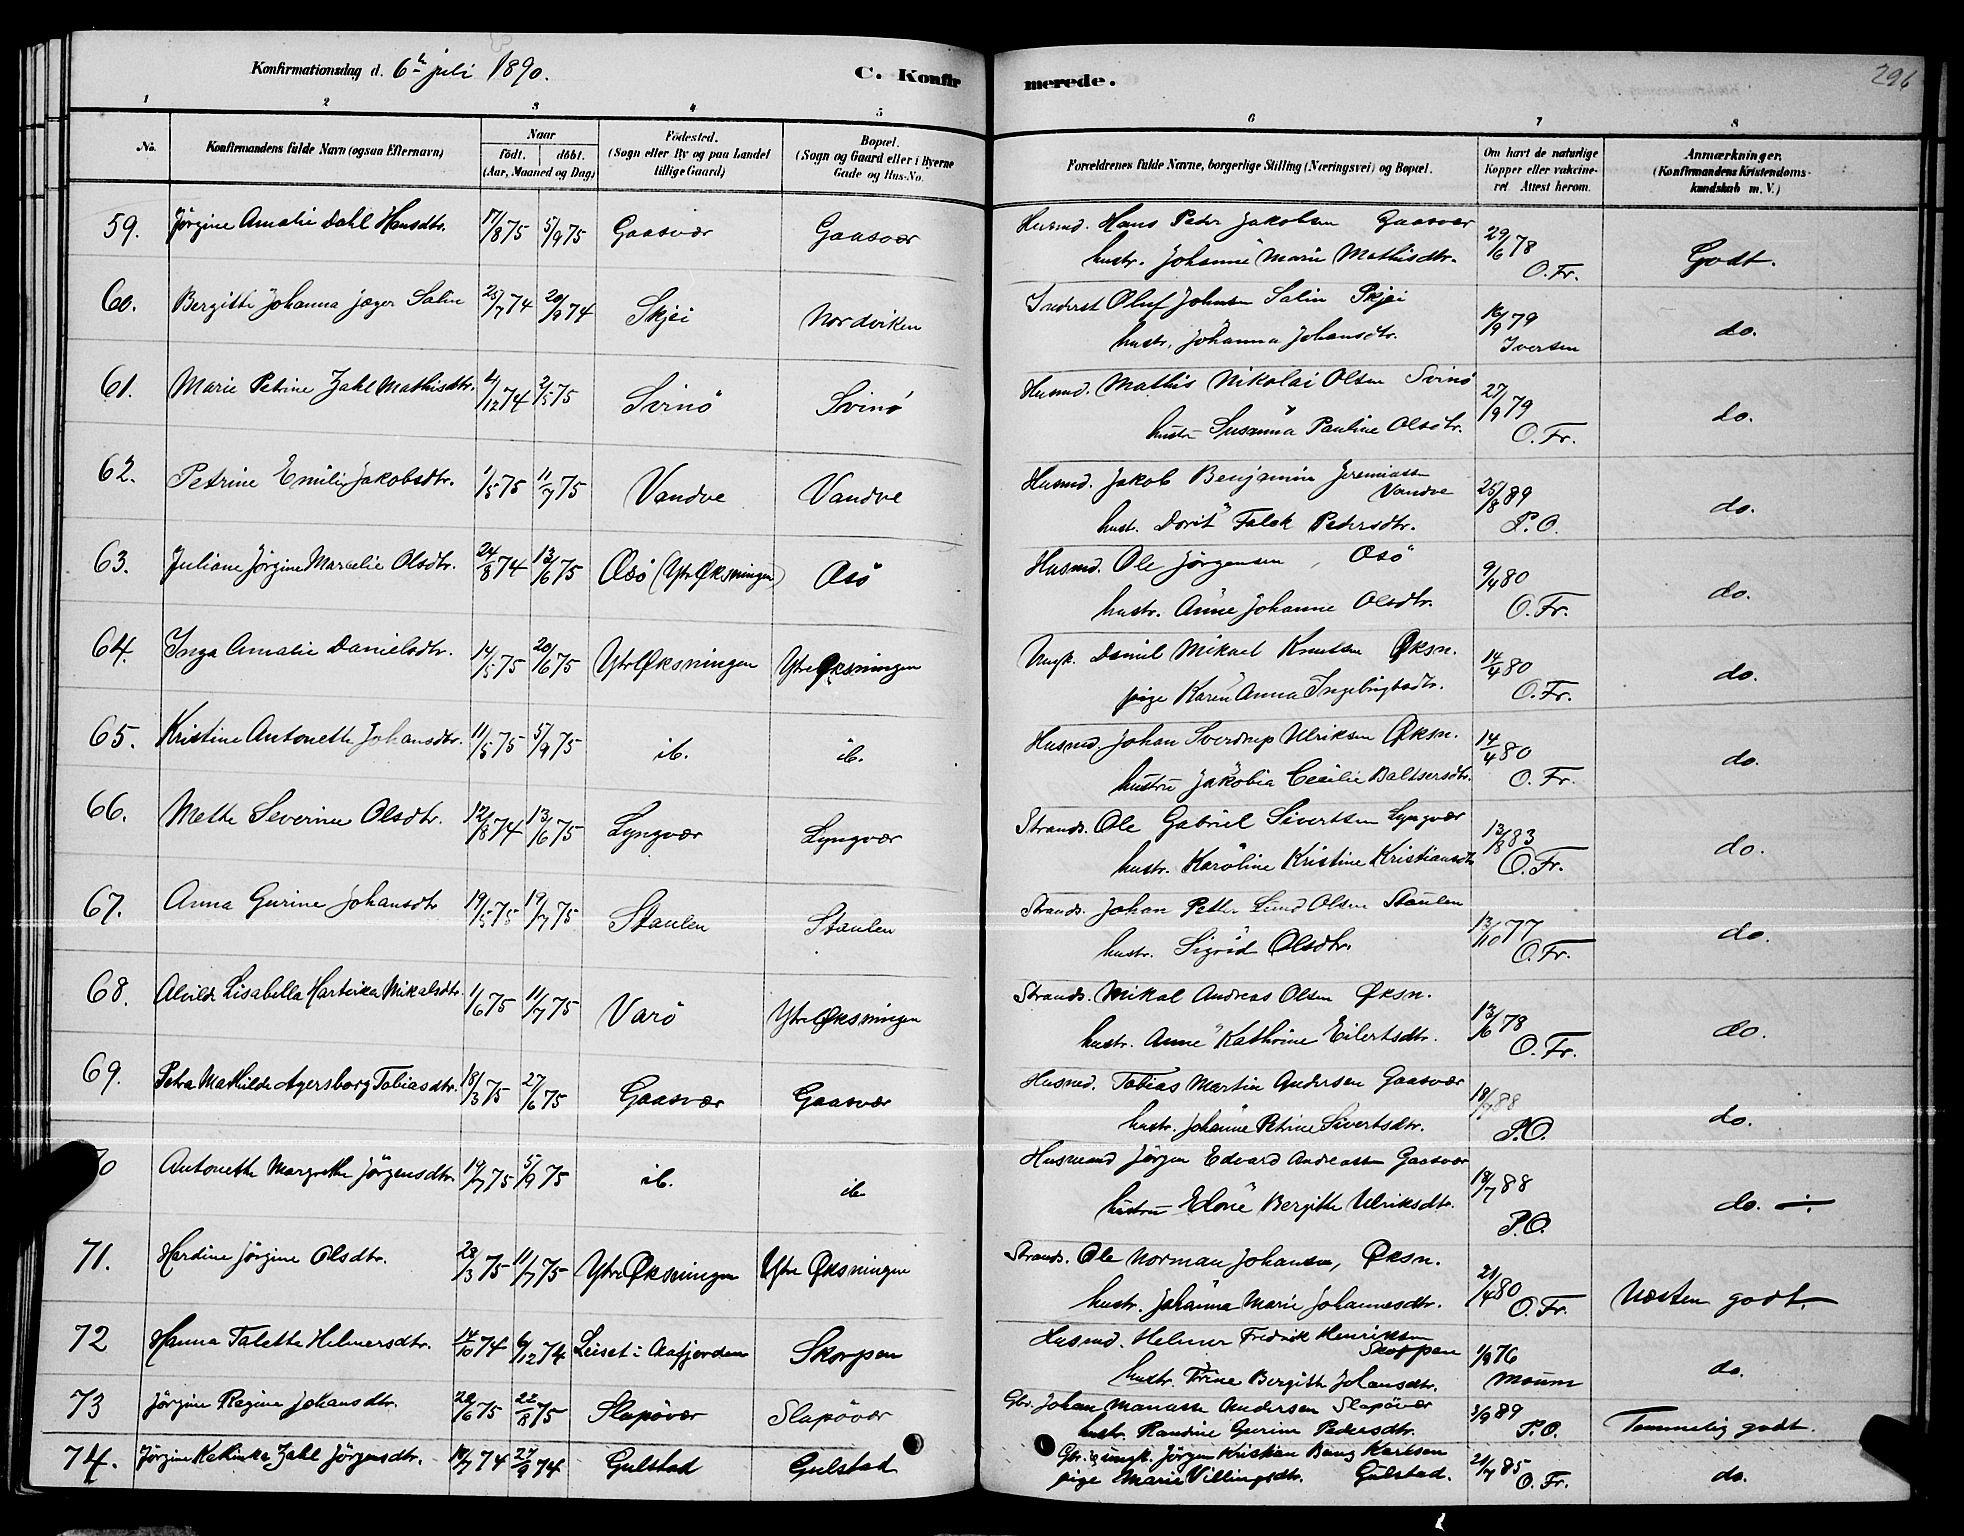 Konfirmationsdag d. 6te juli 1890.
C. Konfirmerede.
296
1 2 3 4 5 6 7 8
No. Konfirmandens fulde Navn (ogsaa Efternavn) Naar født. døbt. (Aar, Maaned og Dag) Fødested. (Sogn eller By og paa Landet tillige Gaard) Bopæl. (Sogn og Gaard eller i Byerne Gade og Hus-No. Forældrenes fulde Navne, borgerlige Stilling (Næringsvei) og Bopæl. Om havt de naturlige Kopper eller vakcineret. Attest herom. Anmærkninger. (Konfirmandens Kristendomskundskab m. V.)
59. Jörgine Amalie Dahl Hansdtr. 17/8 75 5/9 75 Gaasvær Gaasvær Husmd. Hans Peter Jakobsen Gaasvær 29/6 78 Godt.
hustr. Johanne Marie Mathisdtr. O. Fr.
60. Bergitte Johanna Jæger Salin 25/7 74 20/9 74 Skjei Nordviken Inderst Oluf Johnsen Salin Skjei 16/9 79 do.
hustr. Johanna Johansdtr. Iversen
61. Marie Petrine Zahl Mathisdtr. /12 74 2/5 75 Svinö Svinö Husmd. Mathis Nikolai Olsen Svinö 27/9 79 do.
hustr Susanna Pauline Olsdtr. O. Fr.
62. Petrine Emilie Jakobsdtr. 1/5 75 11/7 75 Vandve Vandve Husmd. Jakob Benjamin Jeremiassen 25/8 89 do.
Vandve
hust. Dorit Falck Pedersdtr. P. O.
63. Juliane Jörgine Marcelie Olsdtr. 24/8 74 13/6 75 Æsö (Ytre Øksningen) Æsö Husmd. Ole Jörgensen, Æsö 9/4 80 do.
hustr. Anne Johanne Olsdtr. O. Fr.
64. Inga Amalie Danielsdtr. 14/5 75 20/6 75 Ytre Øksningen Ytre Øksningen Ungk. Daniel Mikael Knutsen Øksn. 14/4 80 do.
pige Karen Anna Ingebrigtsdtr. O. Fr.
65. Kristine Antonette Johansdtr. 11/5 75 5/9 75 ib. ib. Husmd. Johan Sverdrup Ulriksen Øksn. 14/4 80 do.
hustru Jakobia Cecilie Baltsersdtr. O. Fr.
66. Mette Severine Olsdtr. 12/8 74 13/6 75 Lyngvær Lyngvær Strands. Ole Gabriel Sivertsen Lyngvær 13/8 83 do.
hustr. Karoline Kristine Kristiansdtr O. Fr.
67. Anna Gurine Johansdtr 19/5 75 19/7 75 Staulen Staulen Strands. Johan Petter Lund Olsen Staulen 13/10 77 do.
hustr. Sigrid Olsdtr. O. Fr.
68. Alvilde Lisabella Hartvika Mikalsdtr. 1/6 75 11/7 75 Varö Ytre Øksningen Strands. Mikal Andreas Olsen Øksn. 13/6 78 do.
hustr. Anne Kathrine Eilertsdtr. O. Fr.
69. Petra Mathilde Agersborg Tobiasdtr. 18/3 75 27/6 75 Gaasvær Gaasvær Husmd. Tobias Martin Andersen Gaasvær 18/7 88 do.
hustr. Johanne Petrine Sivertsdtr. P. O.
70 Antonette Margrethe Jörgensdtr. 19/7 75 5/9 75 ib. ib. Husmand Jörgen Edvard Andreassen Gaasvær 18/7 88 do. ÷
hustru Elone Bergitte Ulriksdtr. P. O.
71. Hardine Jörgine Olsdtr. 28/3 75 11/7 75 Ytre Øksningen Ytre Øksningen Strands. Ole Norman Johansen, Øksn. 21/4 80 Næsten godt.
hustr. Johanna Marie Johannesdtr. O. Fr.
72 Hanna Talette Helmersdtr. 14/10 74 6/12 74 Leiset i Aafjorden Skorpen Husmd. Helmer Fredrik Henriksen 1/9 76 do.
Skorpen
hustr. Trine Bergitte Johansdtr. Moum
73 Jörgine Regine Johansdtr. 20/6 75 22/8 75 Slapövær Slapövær Gbr. Johan Manasse Andersen Slapövær 3/9 89 Temmelig godt.
hustr. Randine Gurine Pedersdtr. P. O.
74. Jörgine Kathinka Zahl Jörgensdtr. 10/7 74 27/9 74 Gulstad Gulstad Gbr. ungk. Jörgen Kristian Bang Karlsen 21/7 85 do.
pige Marie Villingsdtr. Gulstad. O. Fr.